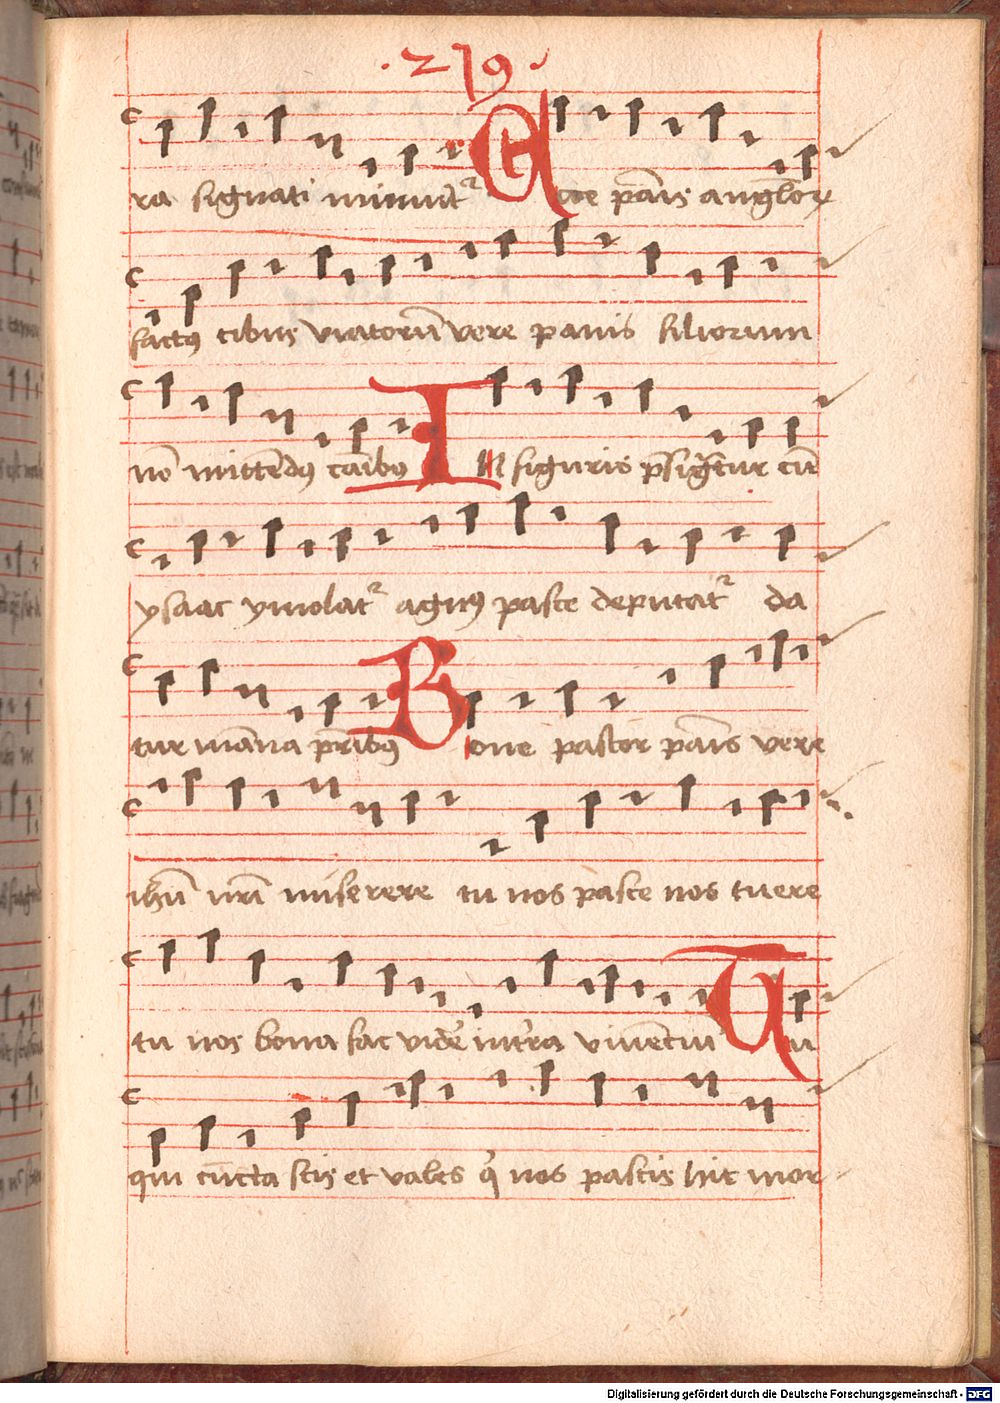 ·279·
ra signati minuit᷑ Ecce pāis angl̄oꝝ
factꝰ cibus viatorū vere panis filiorum
nō mittēdꝰ cāibꝰ In figuris p̄siḡtur cū
ysaac ymolat᷑ agnꝰ pasce deputat᷑ da
tur māna pr̄ibꝰ Bone pastor pāis vere
ih̄u nr̄i miserere tu nos pasce nos tuere
tu nos bona fac vidē int̄ra viuēciū Tu
qui cuncta scis et vales q̇ nos pascis hic mor
Digitalisierung gefördert durch die Deutsche Forschungsgemeinschaft - DFG